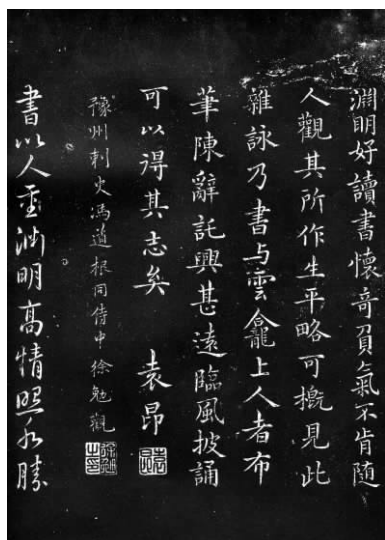 淵明好讀書懷奇負氣不肯随
人觀其所作生平略可概見此
雜詠乃書与雲龕上人者布
筆陳辭託興甚遠臨風披誦
可以得其志矣　袁昂
豫州刺史馮道根同侍中徐勉觀
書以人重淵明高情照水勝